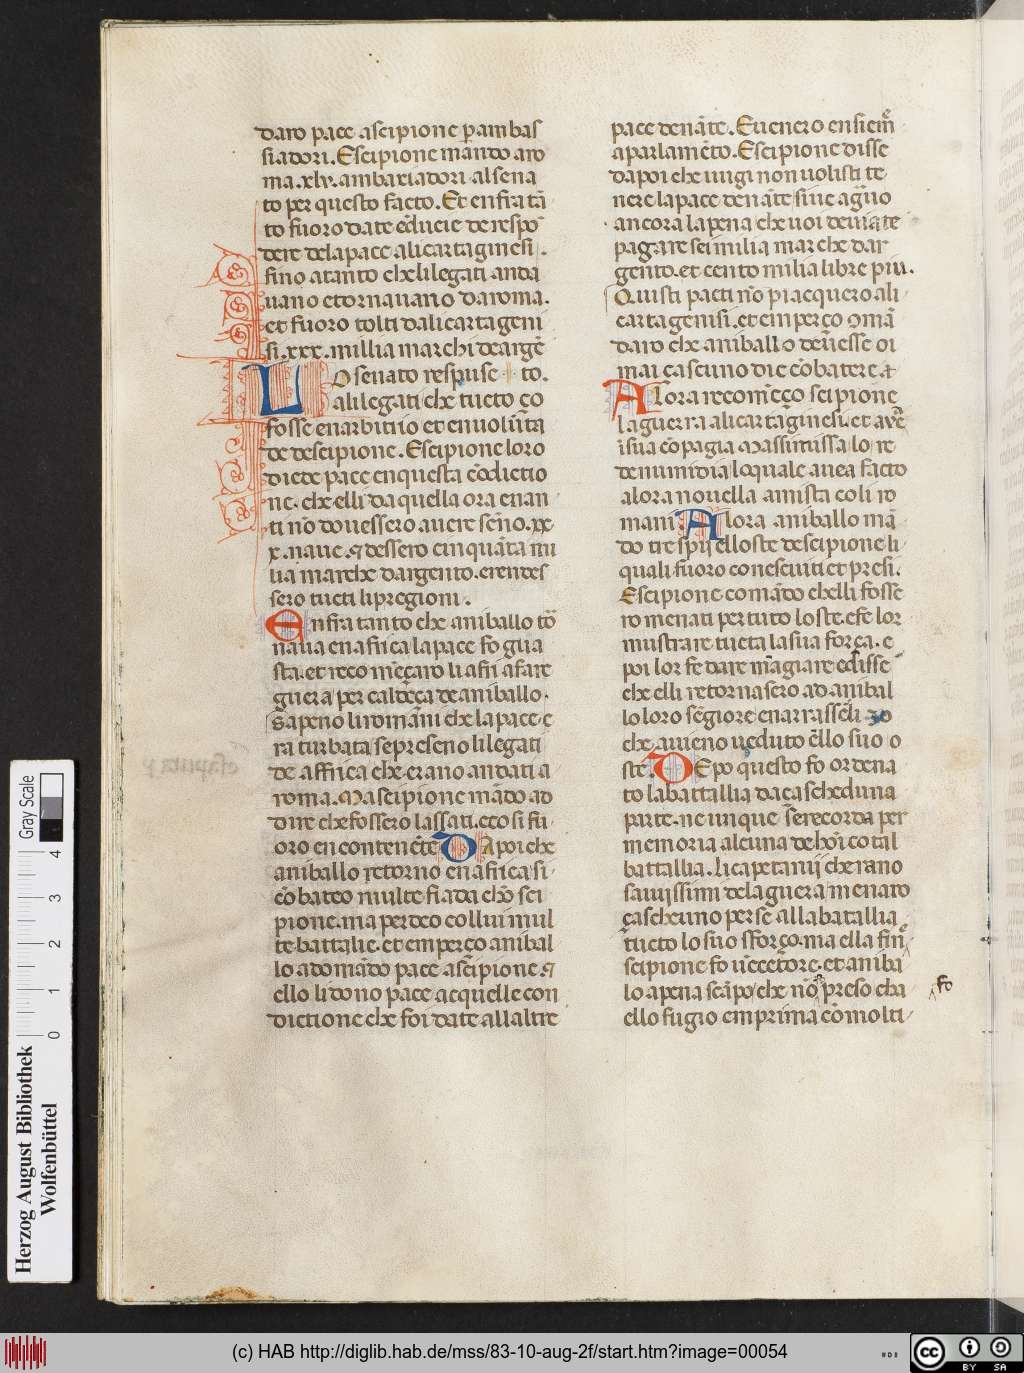 daro pace ascipione p̱ ambas
siadori. Escipione mandò aro
ma .xlv. ambaxiadori alsena
to per questo facto. Et enfra tā
to fuoro date cōducie de respō
dere delapace alicartaginesi.
fino atanto chelilegati anda
uano etornauano daroma.
et fuoro tolti dalicartageni
si .xxx. millia marchi deargē
Lo senato respuse to.
alilegati che tucto co
fosse enarbitrio et enuolūta
de descipione. Escipione loro
diede pace enquesta cōdictio
ne. che elli da quella ora enan
ti nō douessero auere senō .xx
x. naue. ⁊ dessero cinquāta mi
lia marche dargento. erendes
sero tucti lipregioni.
Enfra tanto che aniballo tō
naua enafrica lapace fo gua
sta. et recomēçaro li afri afare
guerra per caldeça de aniballo.
Sapeno liromani che lapace e
ra turbata sepreseno lilegati
de affrica che erano andati a
roma. Mascipione mādo ad
dire chefossero lassati. eco si fu
oro en contenēte Dapoi che
aniballo retorno enafrica si
cōbateo multe fiada chō sci
pione. ma perdeo collui mul
te battalie. et emperço anibal
lo adomādo pace ascipione ⁊
ello li dono pace acquelle con
dictione che foi date allaltre
pace denāte. Euenero ensiemē
aparlamēto. Escipione disse
dapoi che uugi non uolisti te
nere lapace denāte sine aguō
ancora lapena che uoi deuiate
pagare sei milia marche dar
gento. et cento milia libre piu.
Quisti pacti nō piacquero ali
cartagenisi. et emperço ꝯmā
daro che aniballo deuesse oi
mai cascuno die cōbatere ⁊
Alora recomēço scipione
laguerra alicartaginesi. et auē
isua cōpagia Massinissa lo re
denumidia loquale auea facto
alora nouella amista coli ro
mani. Alora aniballo mā
do tre spij elloste descipione li
quali fuoro conesciuti et presi.
Escipione comādo chelli fosse
ro menati per tuto loste. efe lor
mustrare tucta lasua força. e
poi lor fe dare māgiare edisse
che elli retornasero ad anibal
lo loro sēgiore enarrasseli
che auieno ueduto ēllo suo o
ste. Depo questo fo ordena
to labattallia da cascheduna
parte. ne unque se recorda per
memoria alcuna de hōi cotal
battallia. Li capetanij che rano
sauijssimi delaguerra menaro
cascheuno per se allabatallia
tucto lo suo sforço. ma ella finē
scipione fo uēcetore. et aniba
lo apena scāpo che nō preso cha fo
ello fugio emprima cō molti
capitn̄ p
Herzog August Bibliothek
Wolfenbüttel
Gray Scale
0 1 2 3 4
(c) HAB http://diglib.hab.de/mss/83-10-aug-2f/start.htm?image=00054
cc BY SA